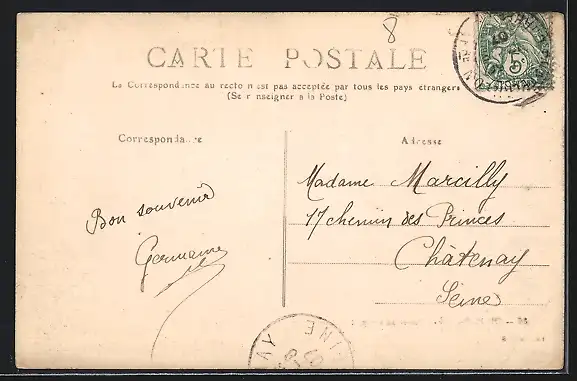 8
CARTE POSTALE
La Correspondance au recto n'est pas acceptée par tous les pays étrangers
(Se renseigner à la Poste)
Correspondance
Adresse
5c
Bon souvenir
Germaine
Madame Marcilly
17 chemin des Princes
Châtenay
Seine